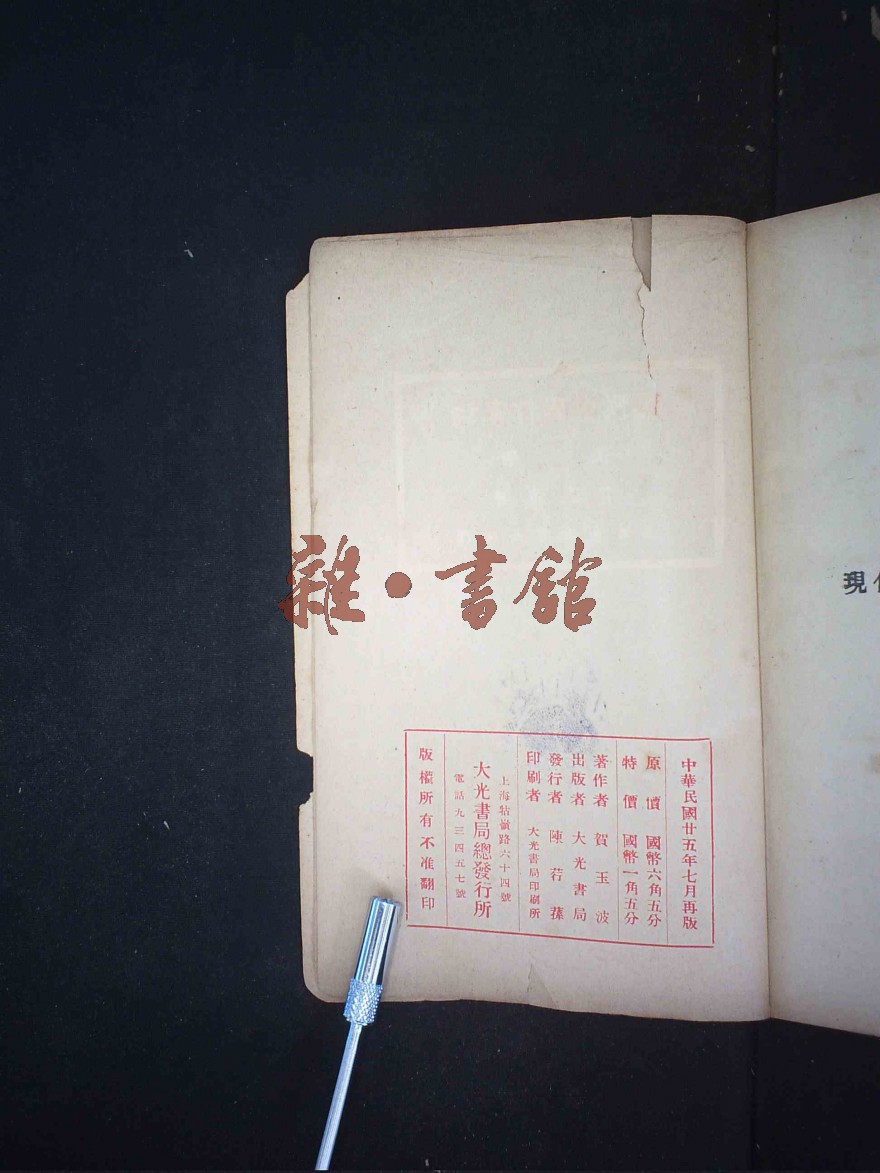 現
雜·書館
中華民國廿五年七月再版
原價 國幣六角五分
特價 國幣一角五分
著作者 賀玉波
出版者 大光書局
發行者 陳若蓀
印刷者 大光書局印刷所
上海牯嶺路六十四號
大光書局總發行所
電話九三四五七號
版權所有不准翻印